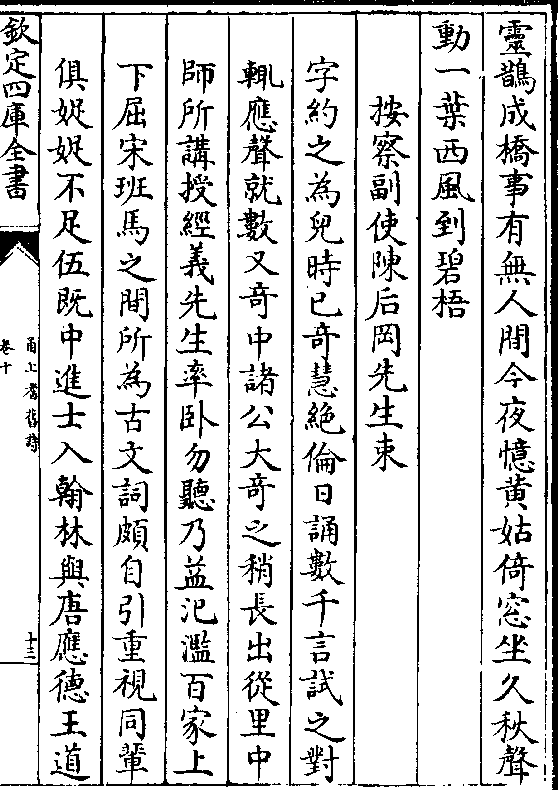 靈鵲成橋事有無人間今夜憶黄姑倚窓坐久秋聲
動一葉西風到碧梧
按察副使陳后岡先生束
字約之為兒時已竒慧絶倫日誦數千言試之對
輒應聲就數又竒中諸公大竒之稍長出從里中
師所講授經義先生率卧勿聽乃益汜濫百家上
下屈宋班馬之間所為古文詞頗自引重視同輩
俱娖娖不足伍既中進士入翰林與唐應德王道
欽定四庫全書
甬上耆舊詩
卷十
十三